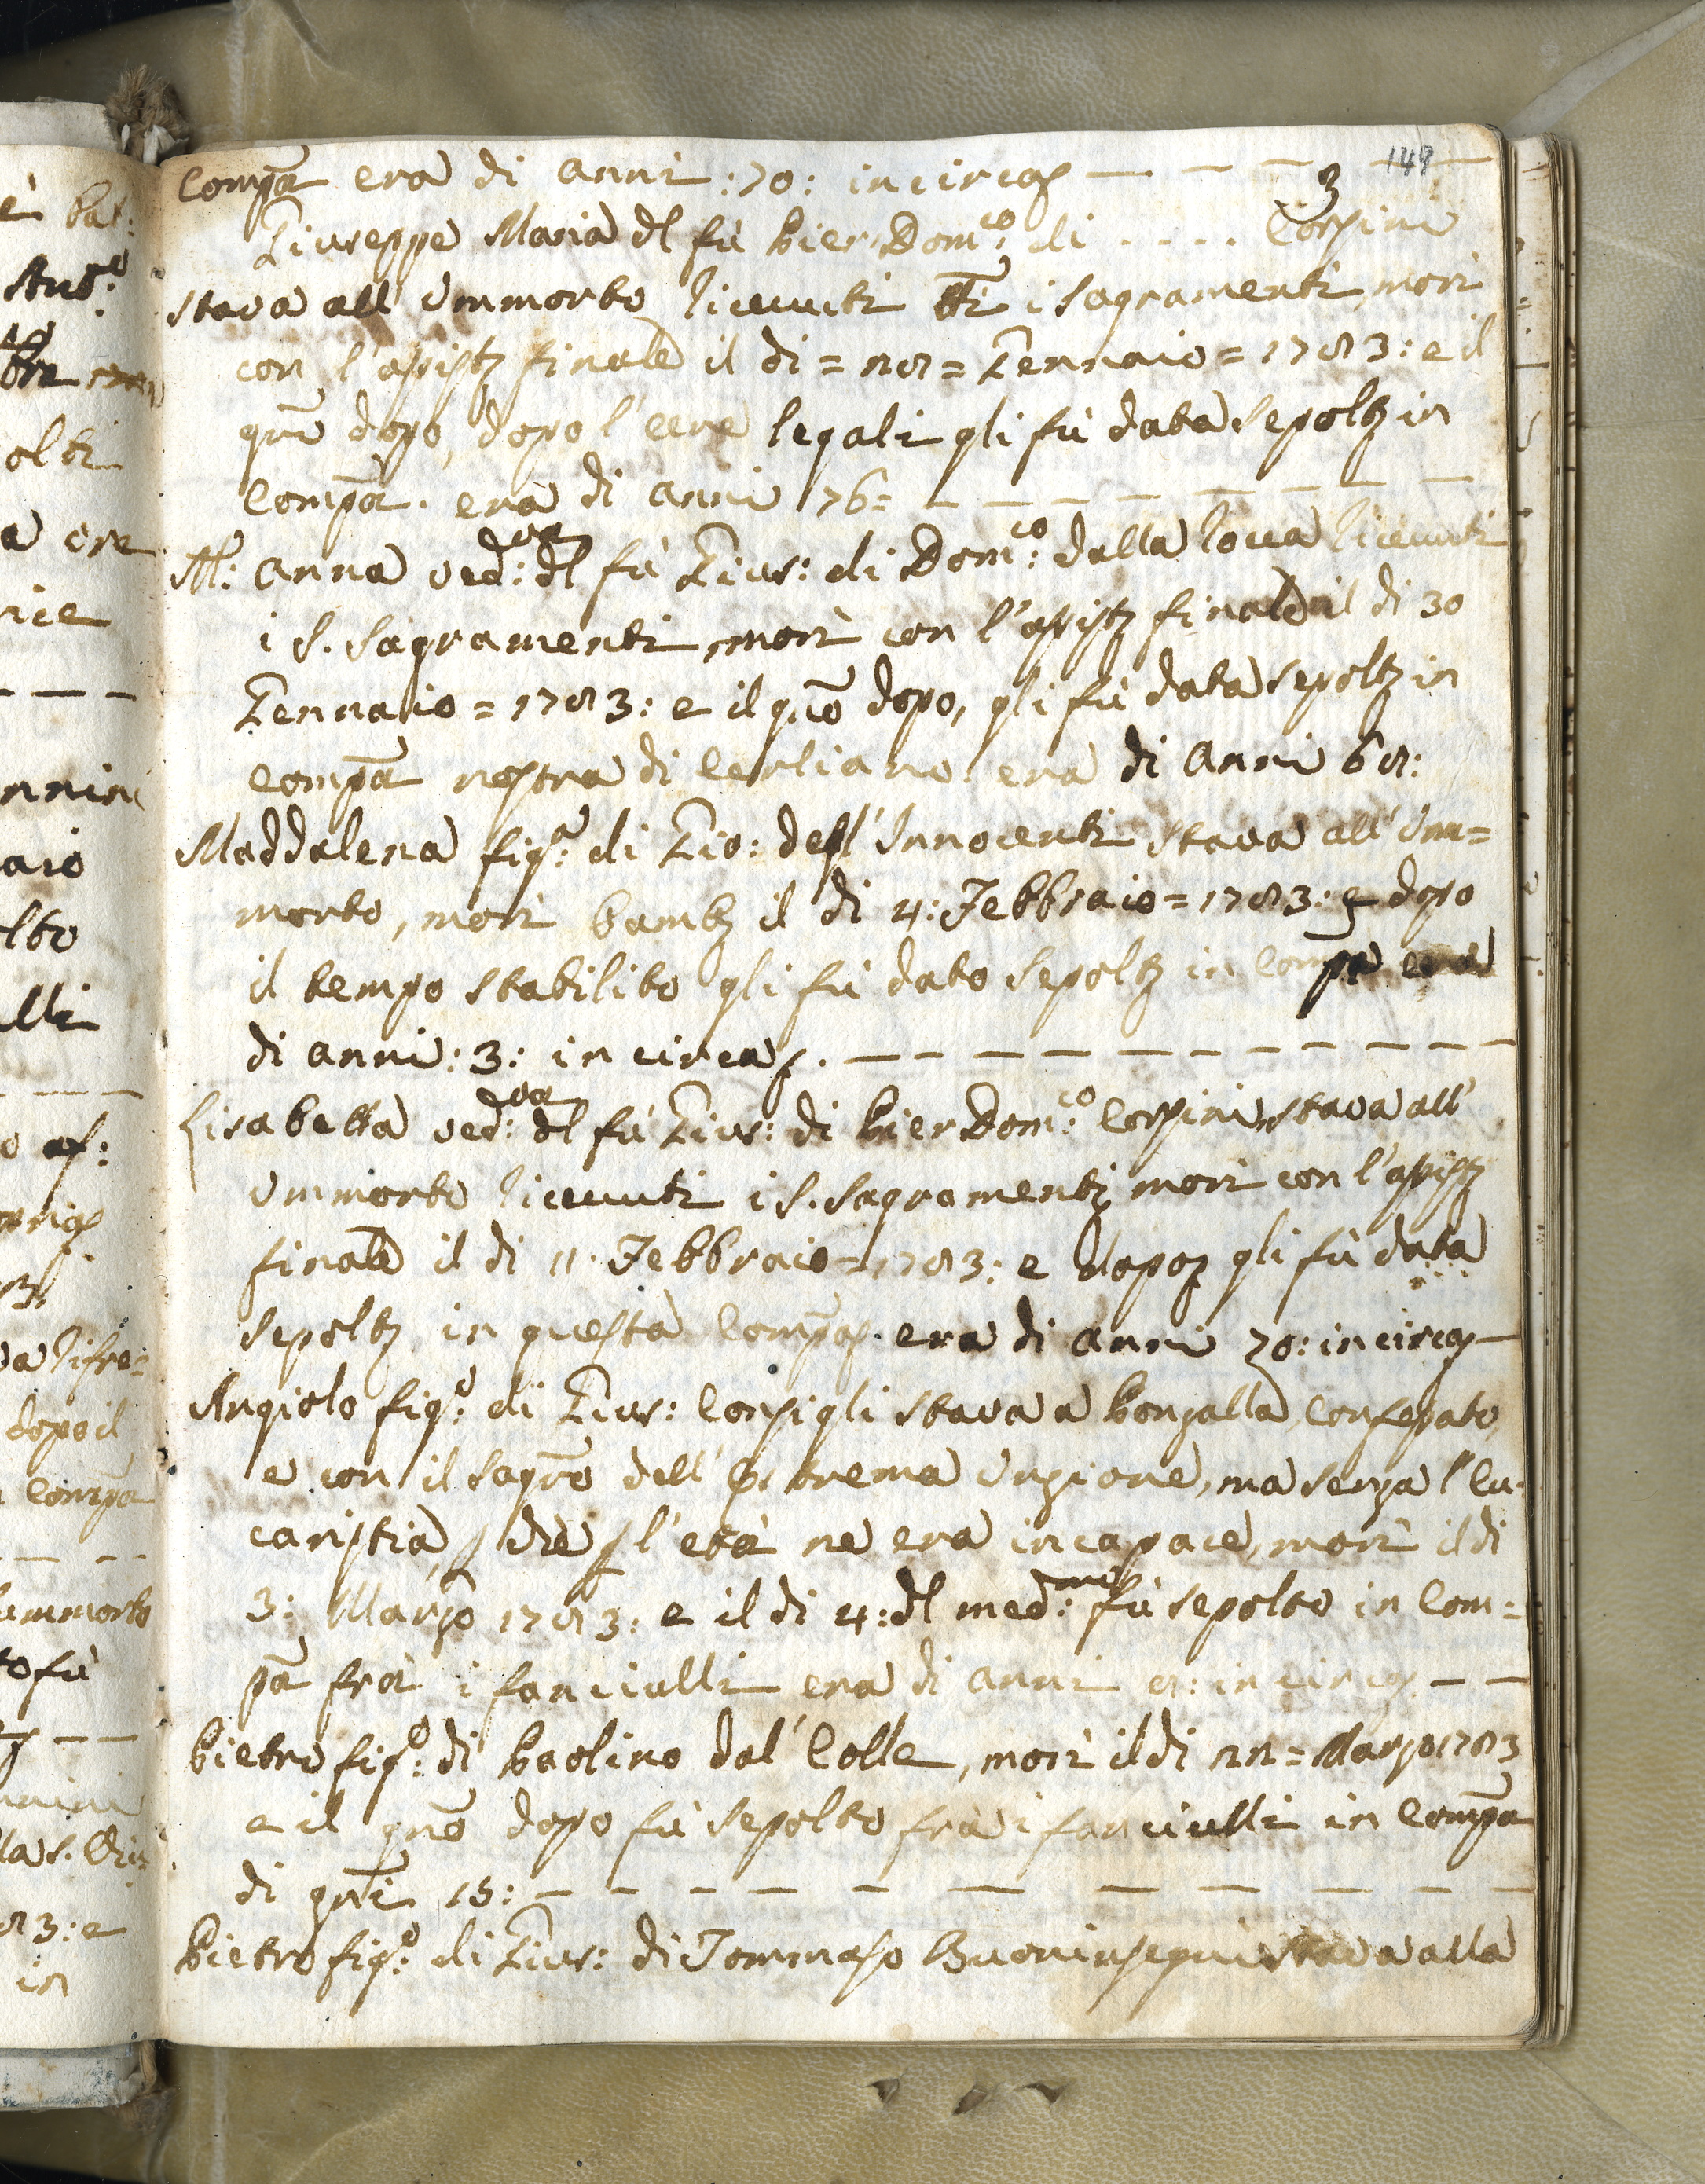 149
3
Compa era di anni: 70: incirca
Giuseppe Maria dl fù Pier Dom.co: di . . . . Corsini
stava all'Ommorto ricevuti tti i sagramenti, morì
con l'assistz finale il di = 28 = Gennaio = 1783: e il
gno dopo, dopo l'ecce legali gli fù data sepoltz in
Compa. era di anni 76=
M: Anna ved:va dl fù Gius: di Dom.co: dalla Rocca ricevuti
i S. Sagramenti morì con l'assistz finale il di 30
Gennaio = 1783: e il gno dopo, gli fù data sepoltz in
Compa nostra di Cerliano: era di anni 68:
Maddalena fig.a: di Gio: degl'Innocenti stava all'Om=
morto, morì bambz il di 4: Febbraio = 1783: e dopo
il tempo stabilito gli fù dato sepoltz in Compa era
di anni: 3: in circa.
Lisabetta ved:va dl fù Gius: di Pier Dom.co: Corsini stava all'
Ommorto ricevuti i S. Sagramenti morì con l'assistz
finale il di 11. Febbraio = 1783: e dopoz gli fù data
sepoltz in questa Compa. era di anni 70: incirca
Angiolo fig.o: di Gius: Consigli stava a Ponzalla, confessato,
e con il sagro dell'Estrema Unzione, ma senza l'Eu=
caristia, che l'età ne era incapace, morì il di
3: Marzo 1783: e il di 4: dl med:mo fù sepolto in Com=
pa frà i fanciulli era di anni 8: in circa
Pietro fig.o: di Paolino dal'Colle, morì il di 22 = Marzo 1783
e il gno dopo fù sepolto frà i fanciulli in Compa
di gni 15:
Pietro fig.o: di Gius: di Tommaso Buoninsegni stava alla